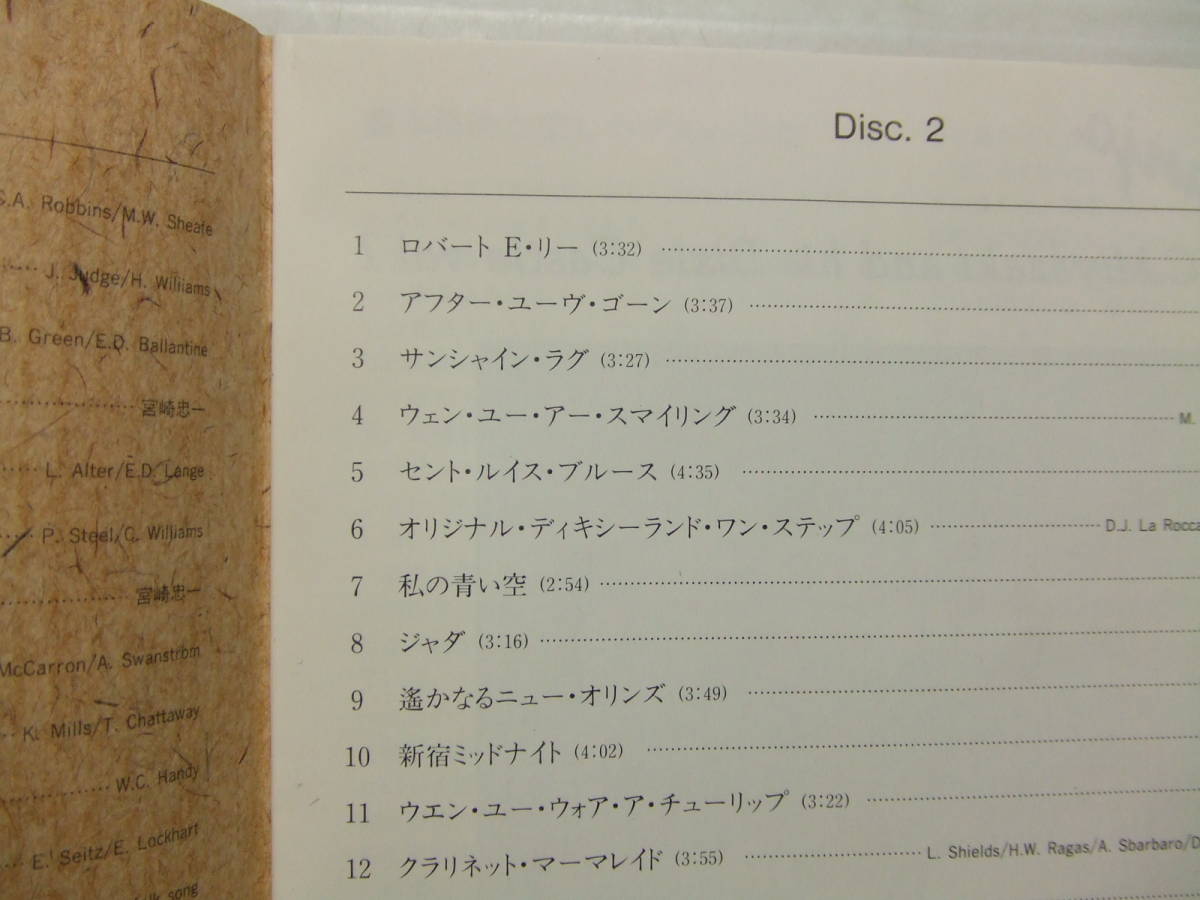 S.A. Robbins/M.W. Sheafe
J. Judge/H. Williams
B. Green/E.D. Ballantine
宮崎忠一
L. Alter/E.D. Lange
P. Steel/C. Williams
宮崎忠一
McCarron/A. Swanstrom
K. Mills/T. Chattaway
W.C. Handy
E. Seitz/E. Lockhart
folk song
Disc. 2
1 ロバート E・リー (3:32)
2 アフター・ユーヴ・ゴーン (3:37)
3 サンシャイン・ラグ (3:27)
4 ウェン・ユー・アー・スマイリング (3:34) M.
5 セント・ルイス・ブルース (4:35)
6 オリジナル・ディキシーランド・ワン・ステップ (4:05) D.J. La Rocca
7 私の青い空 (2:54)
8 ジャダ (3:16)
9 遙かなるニュー・オリンズ (3:49)
10 新宿ミッドナイト (4:02)
11 ウエン・ユー・ウォア・ア・チューリップ (3:22)
12 クラリネット・マーマレイド (3:55) L. Shields/H.W. Ragas/A. Sbarbaro/D